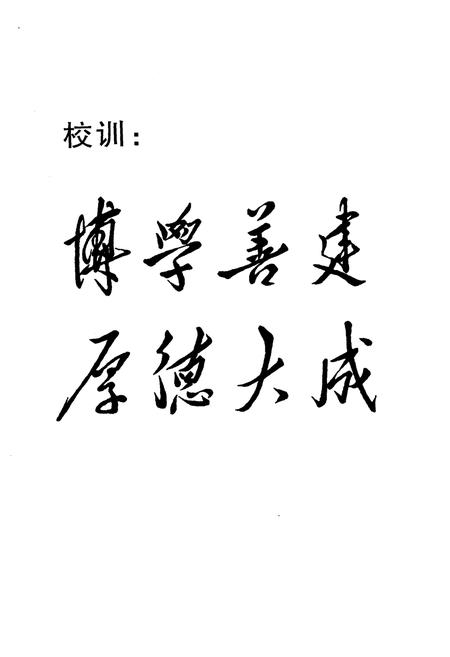 校训：
博學善建
厚德大成